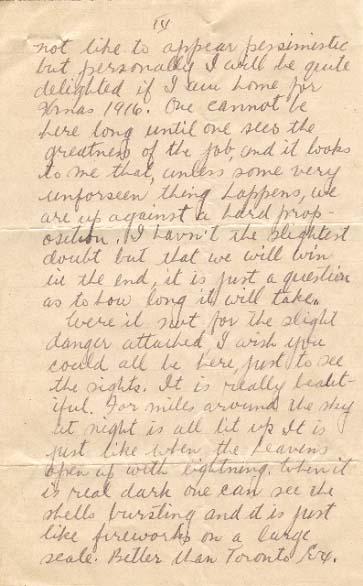 14
not like to appear pessimistic
but personally I will be quite
delighted if I am home for
Xmas 1916. One cannot be
here long until one sees the
greatness of the job, and it looks
to me that, unless some very
unforseen thing happens, we
are up against a hard prop-
osition. I havn't the slightest
doubt but that we will win
in the end, it is just a question
as to how long it will take.
Were it not for the slight
danger attached, I wish you
could all be here, just to see
the sights. It is really beaut-
iful. For miles around the sky
at night is all lit up. It is
just like when the heavens
open up with lightning. When it
is real dark one can see the
shells bursting and it is just
like fireworks on a large
scale. Better than Toronto Ex.